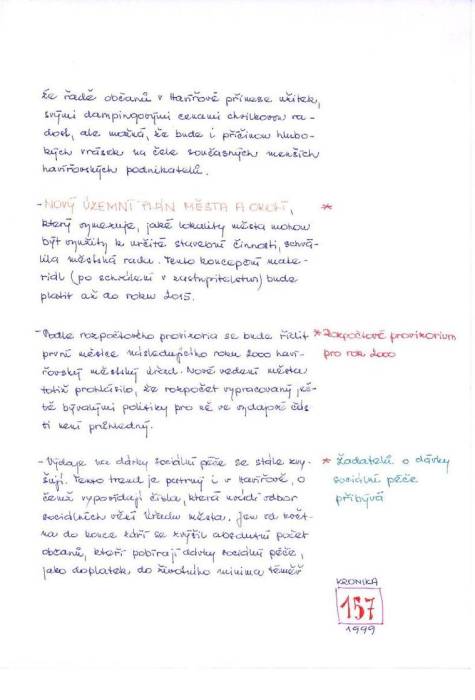 že řadě občanů v Havířově přinese užitek,
svými dampingovými cenami chvilkovou ra-
dost, ale možná, že bude i příčinou hlubo-
kých vrásek na čele současných menších
havířovských podnikatelů.
- NOVÝ ÚZEMNÍ PLÁN MĚSTA A OKOLÍ, *
který vymezuje, jaké lokality města mohou
být využity k určité stavební činnosti, schvá-
lila městská rada. Tento koncepční mate-
riál (po schválení v zastupitelstvu) bude
platit až do roku 2015.
- Podle rozpočtového provizoria se bude řídit
první měsíce následujícího roku 2000 haví-
řovský městský úřad. Nové vedení města
totiž prohlásilo, že rozpočet vypracovaný ješ-
tě bývalými politiky pro ně ve výdajové čás-
ti není průhledný.
* Rozpočtové provizorium
pro rok 2000
- Výdaje na dávky sociální péče se stále zvy-
šují. Tento trend je patrný i v Havířově, o
čemž vypovídají čísla, která uvádí odbor
sociálních věcí úřadu města. Jen od květ-
na do konce září se zvýšil absolutní počet
občanů, kteří pobírají dávky sociální péče,
jako doplatek do životního minima téměř
* Žadatelů o dávky
sociální péče
přibývá
KRONIKA
157
1999